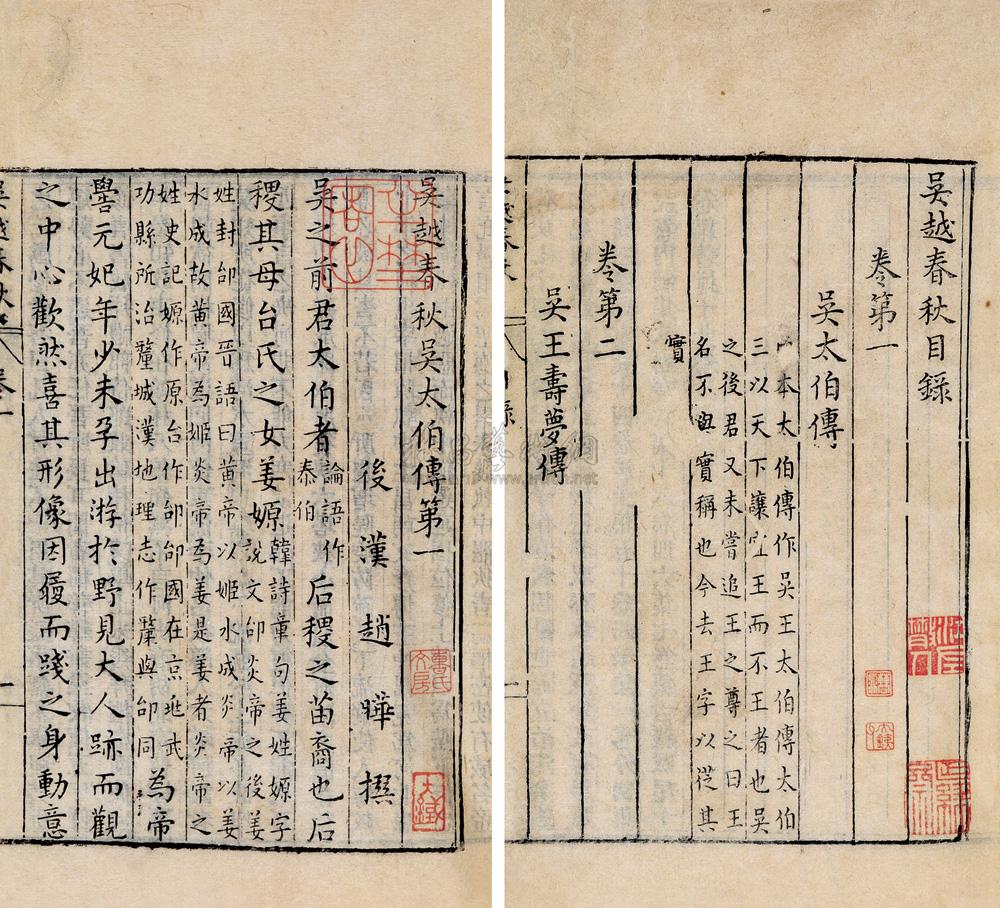 吳越春秋目録
卷第一
吳太伯傳
一本太伯傳作吳王太伯傳太伯
三以天下讓宜王而不王者也吳
之後君又未嘗追王之尊之曰王
名不與實稱也今去王字以從其
實
卷第二
吳王壽夢傳
吳越春秋吳太伯傳第一
後漢趙曄撰
吳之前君太伯者論語作泰伯后稷之苗裔也后
稷其母台氏之女姜嫄韓詩章句姜姓嫄字說文邰炎帝之後姜
姓封邰國晉語曰黃帝以姬水成炎帝以姜
水成故黃帝為姬炎帝為姜是姜者炎帝之
姓史記嫄作原台作邰邰國在京兆武
功縣所治釐城漢地理志作斄與邰同為帝
嚳元妃年少未孕出游於野見大人跡而觀
之中心歡然喜其形像因履而踐之身動意
吳越春秋卷一